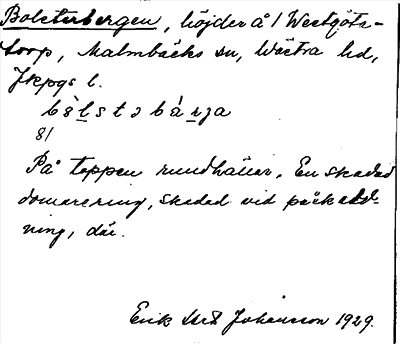 Bolsterbergen, höjder å 1 Westgöta-
torp, Malmbäcks sn, Västra hd,
Jkpgs l.
81
På toppen rundhällar. En skadad
domarering, skadad vid päckodl-
ning, där.
Erik Johansson 1929.